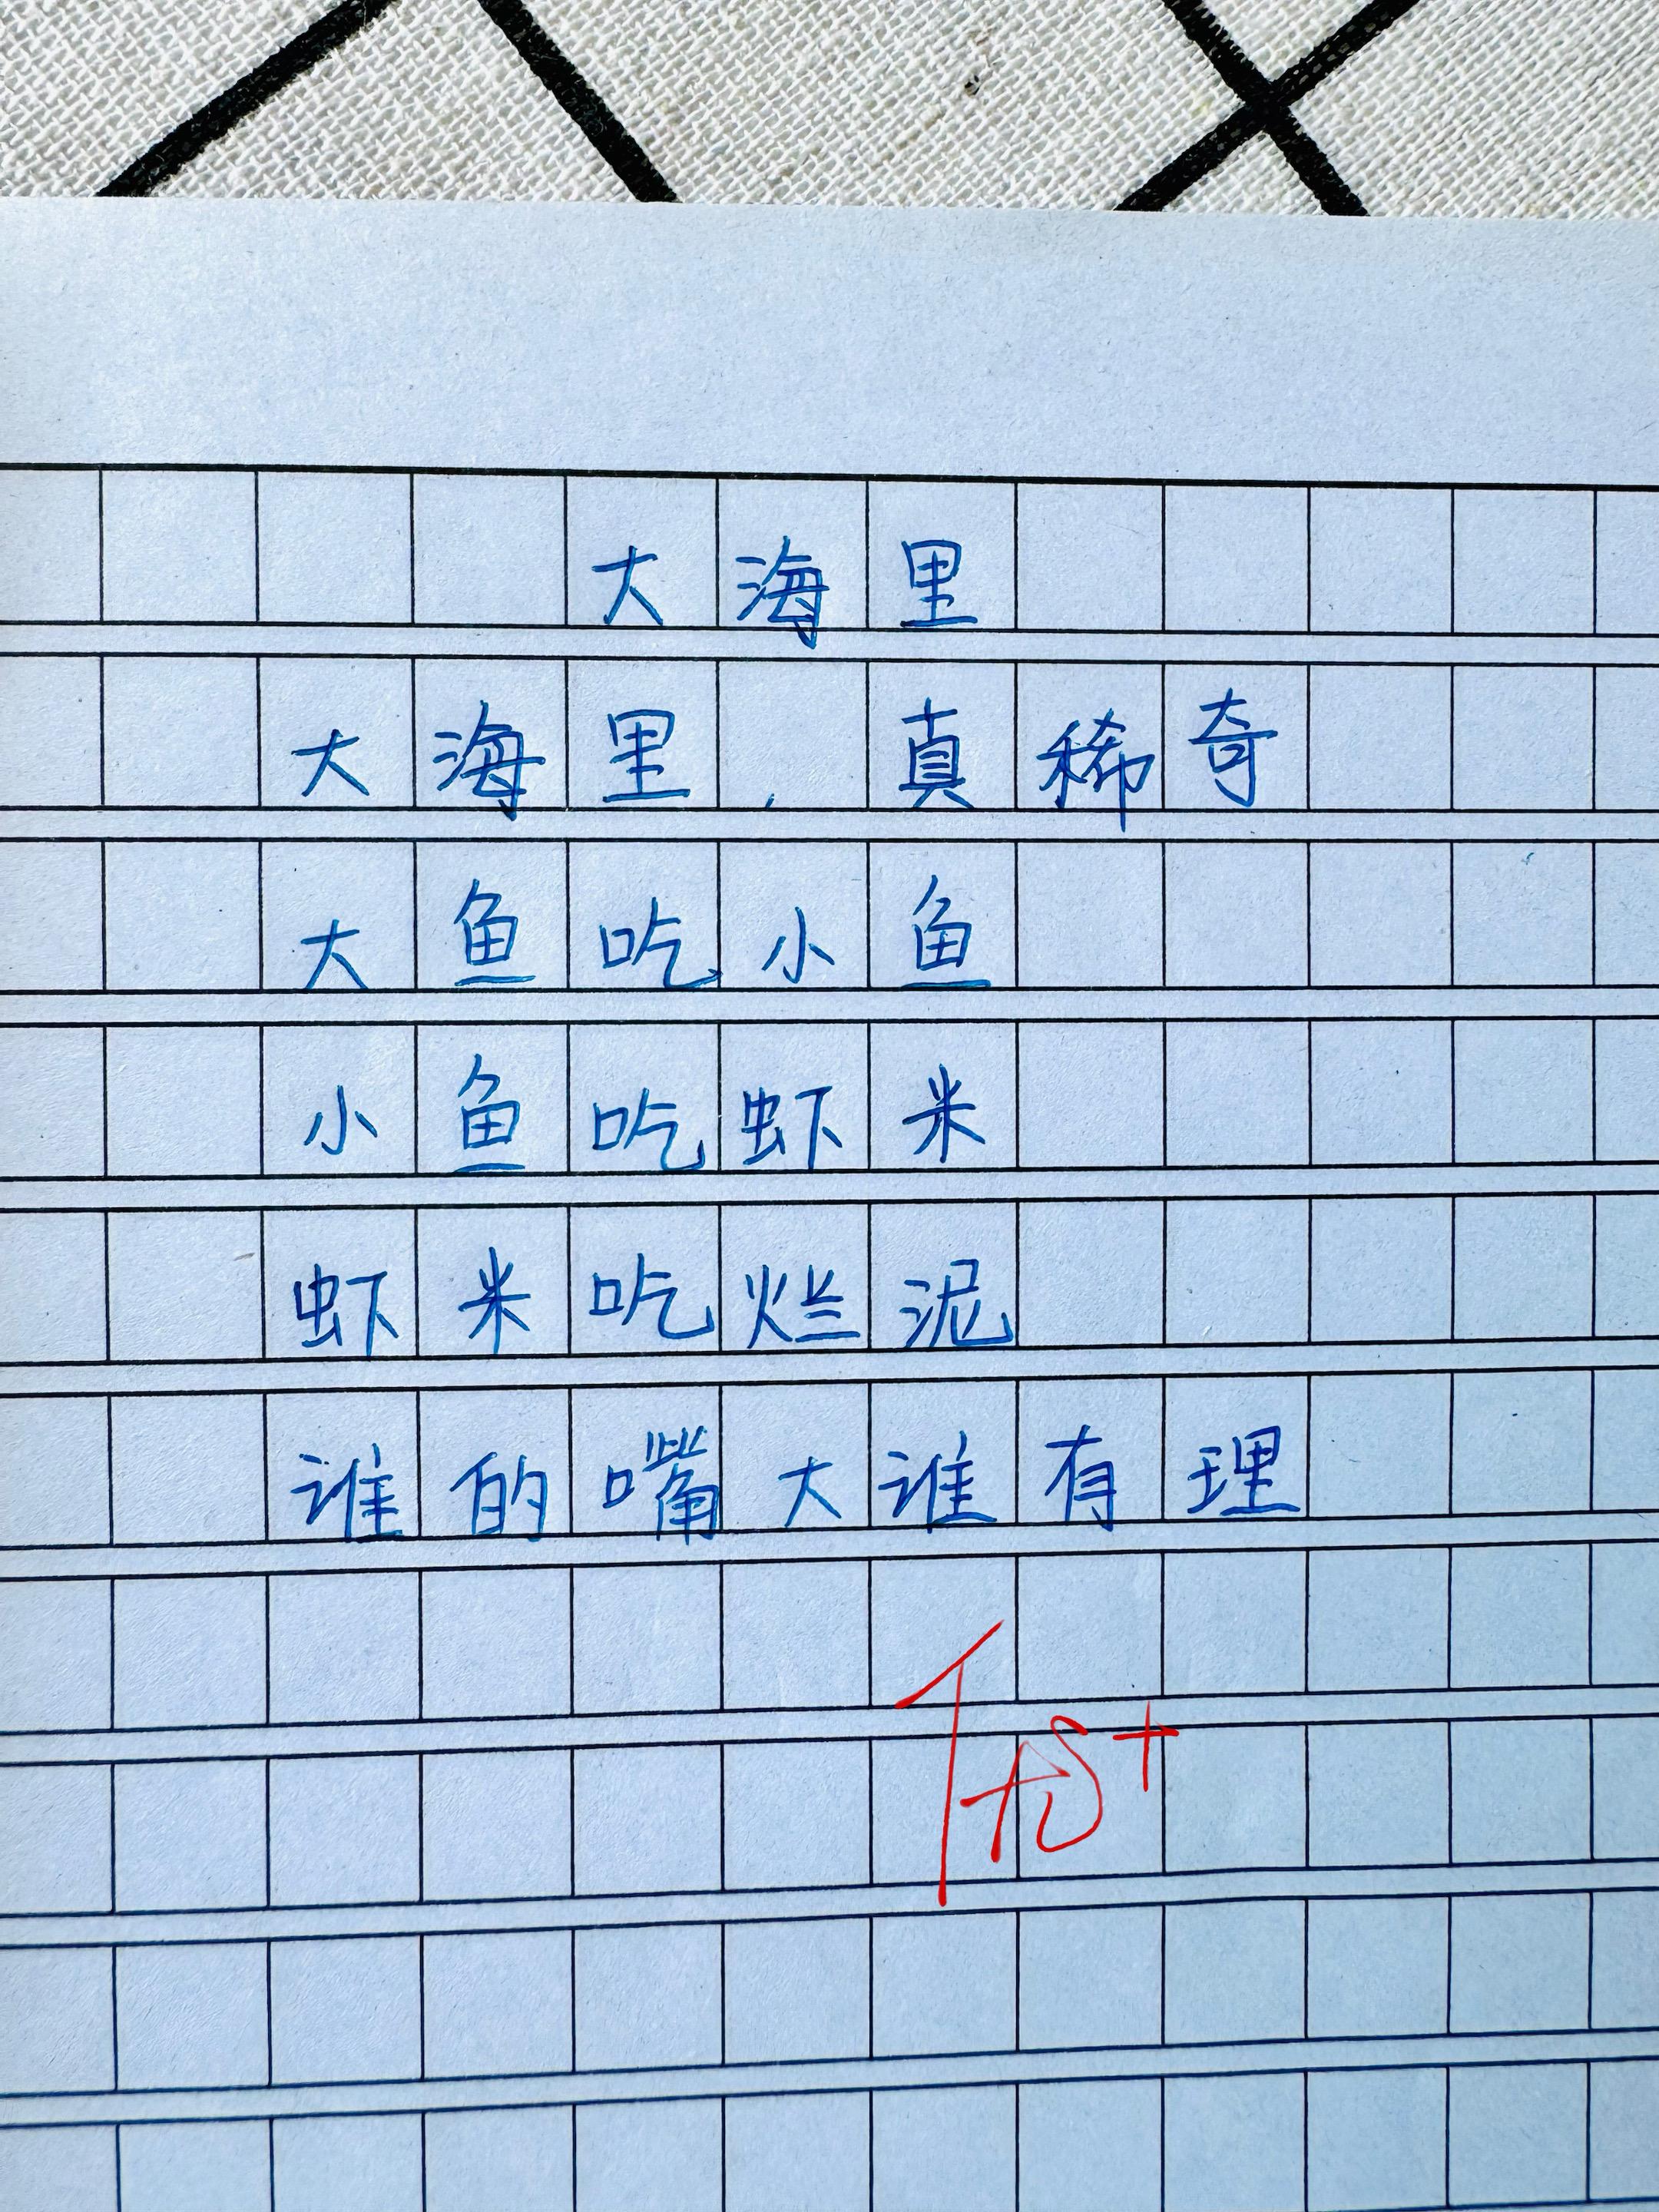 大海里
大海里，真稀奇
大鱼吃小鱼
小鱼吃虾米
虾米吃烂泥
谁的嘴大谁有理
优+